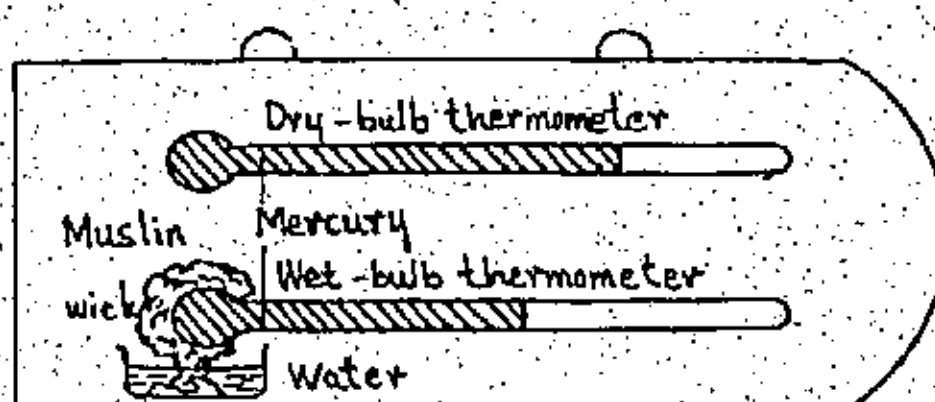 Dry-bulb thermometer
Muslin
Mercury
Wet-bulb thermometer
wick
Water